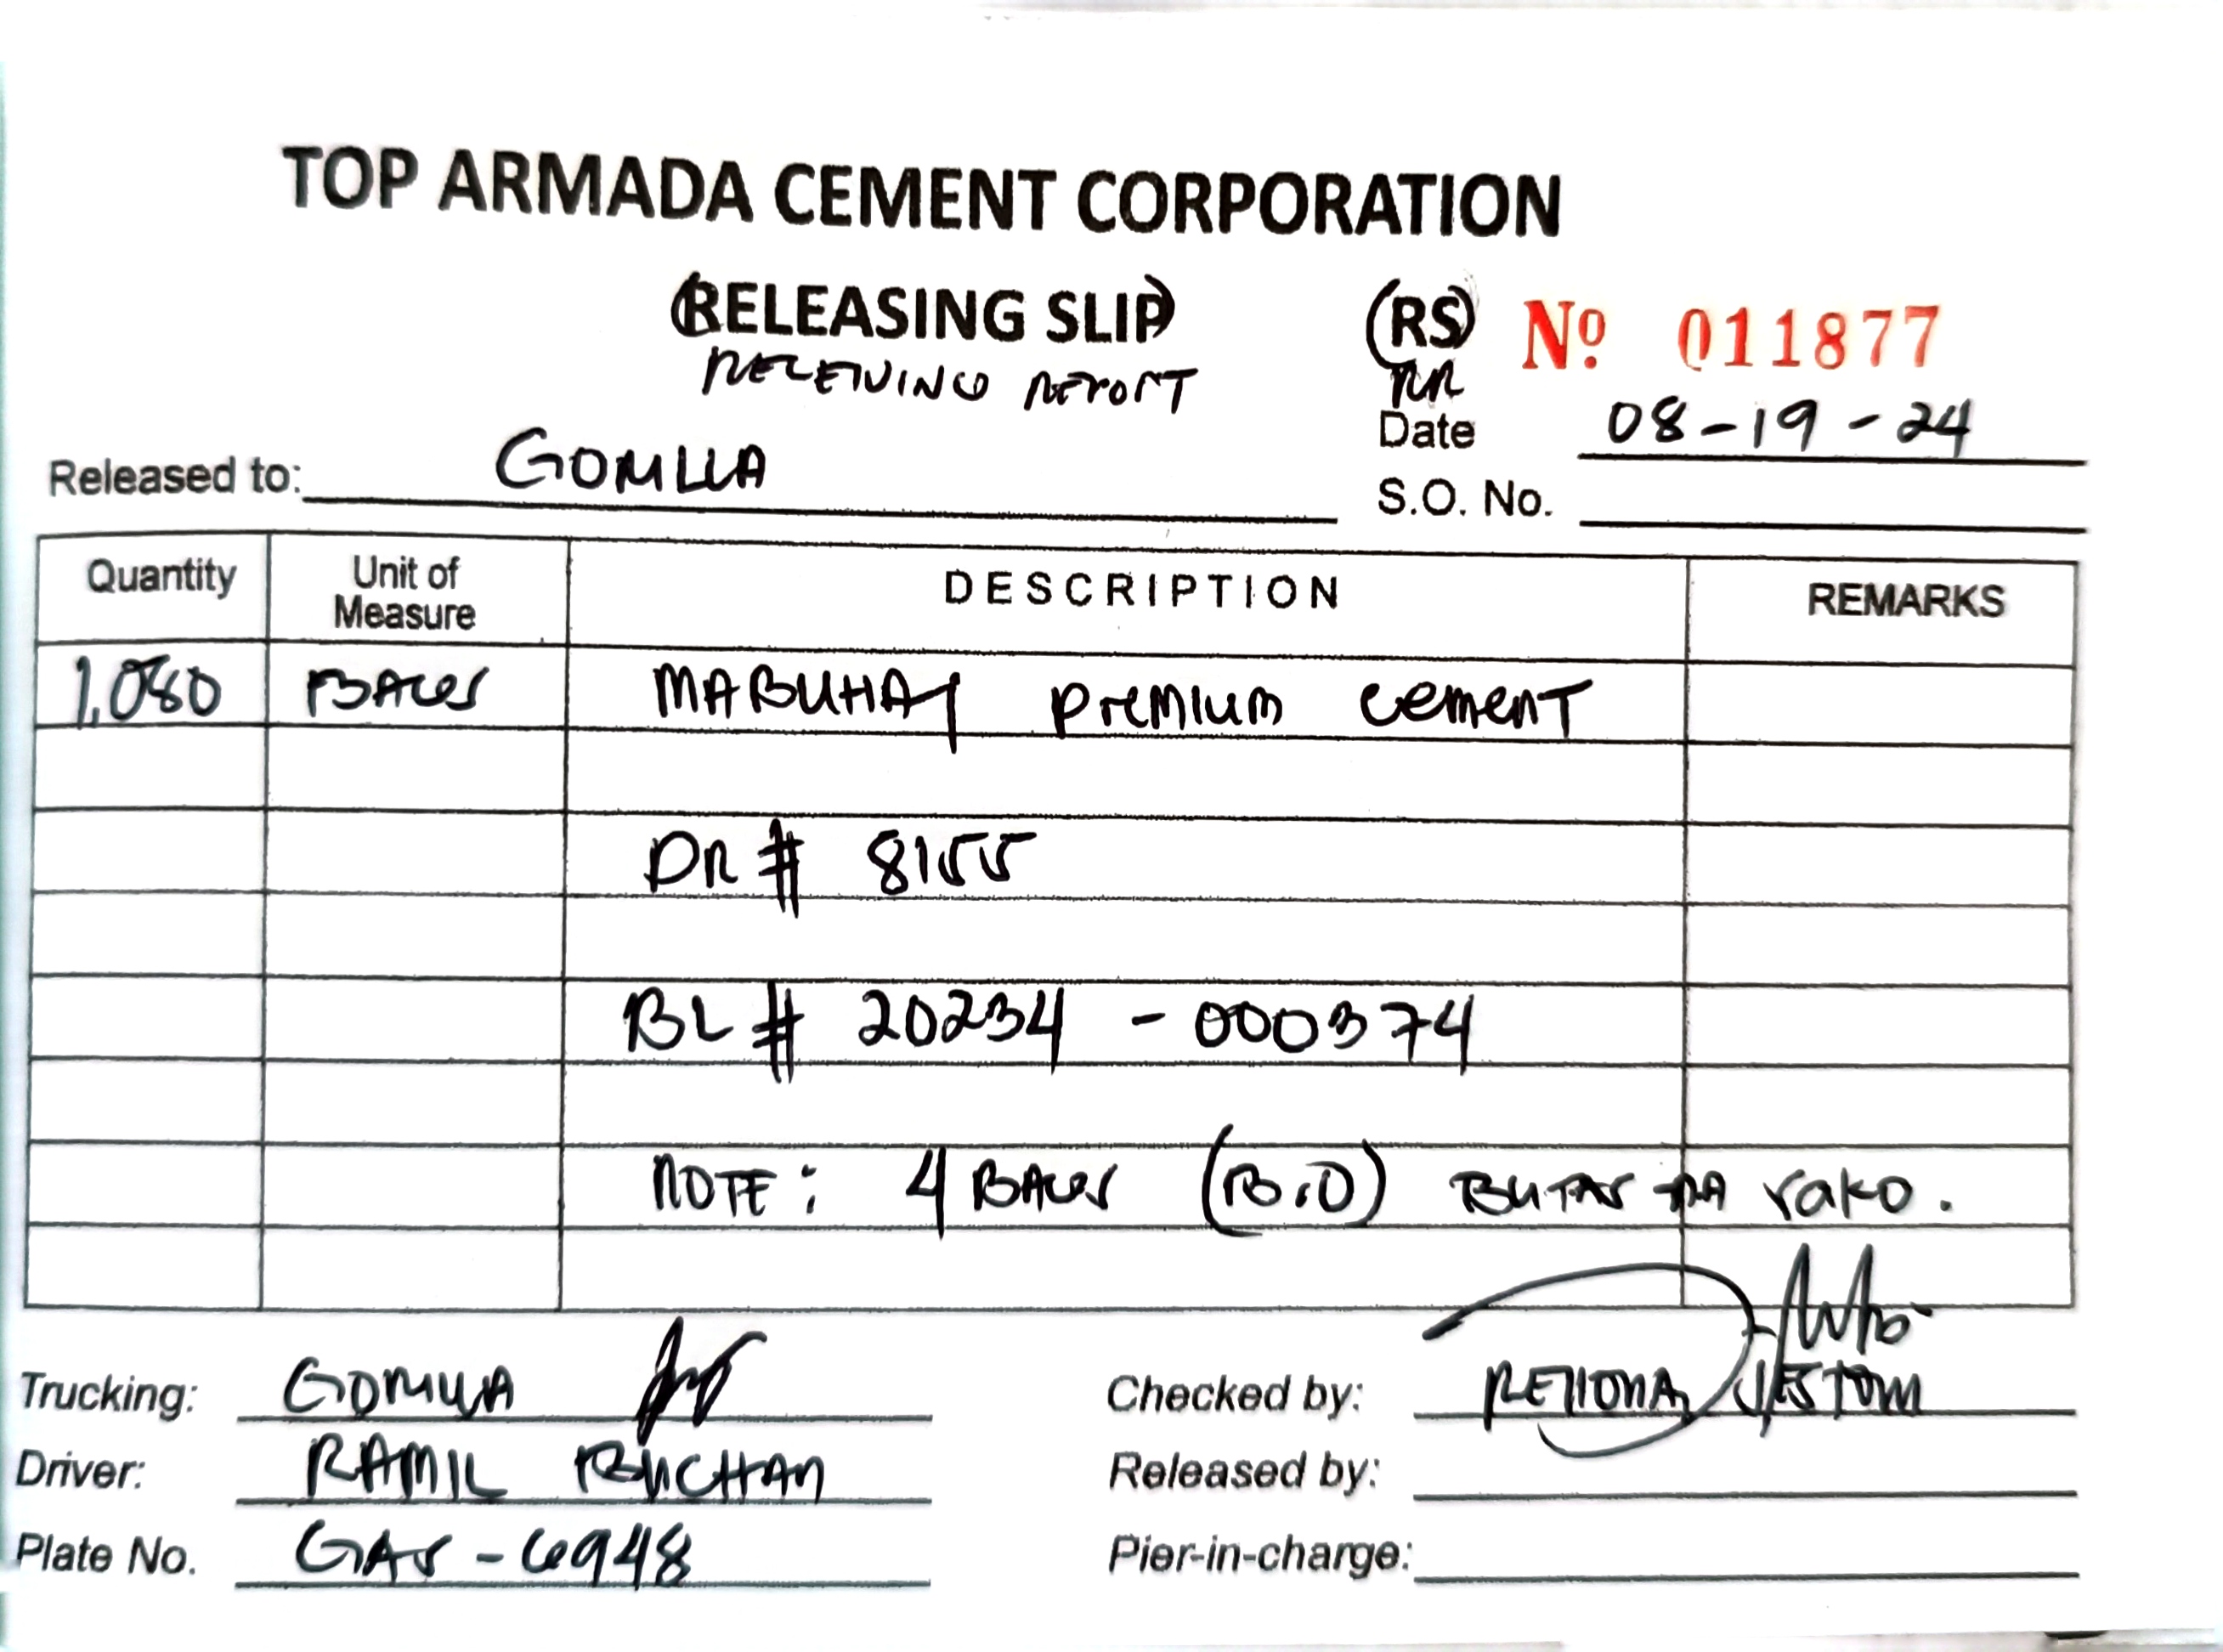 TOP ARMADA CEMENT CORPORATION
(RELEASING SLIP) (RS) Nº 011877
RECEIVING REPORT RR
Date 08-19-24
Released to: GOMLLA
S.O. No.
Quantity Unit of Measure DESCRIPTION REMARKS
1,080 BAGS MABUHAY Premium cement
DR # 8155
BL # 20234 - 000374
NOTE: 4 BAGS (B.O) BUTAS NA sako.
Trucking: GOMLLA Checked by:
Driver: RAMIL BUCHAN Released by:
Plate No. GAS-6948 Pier-in-charge: